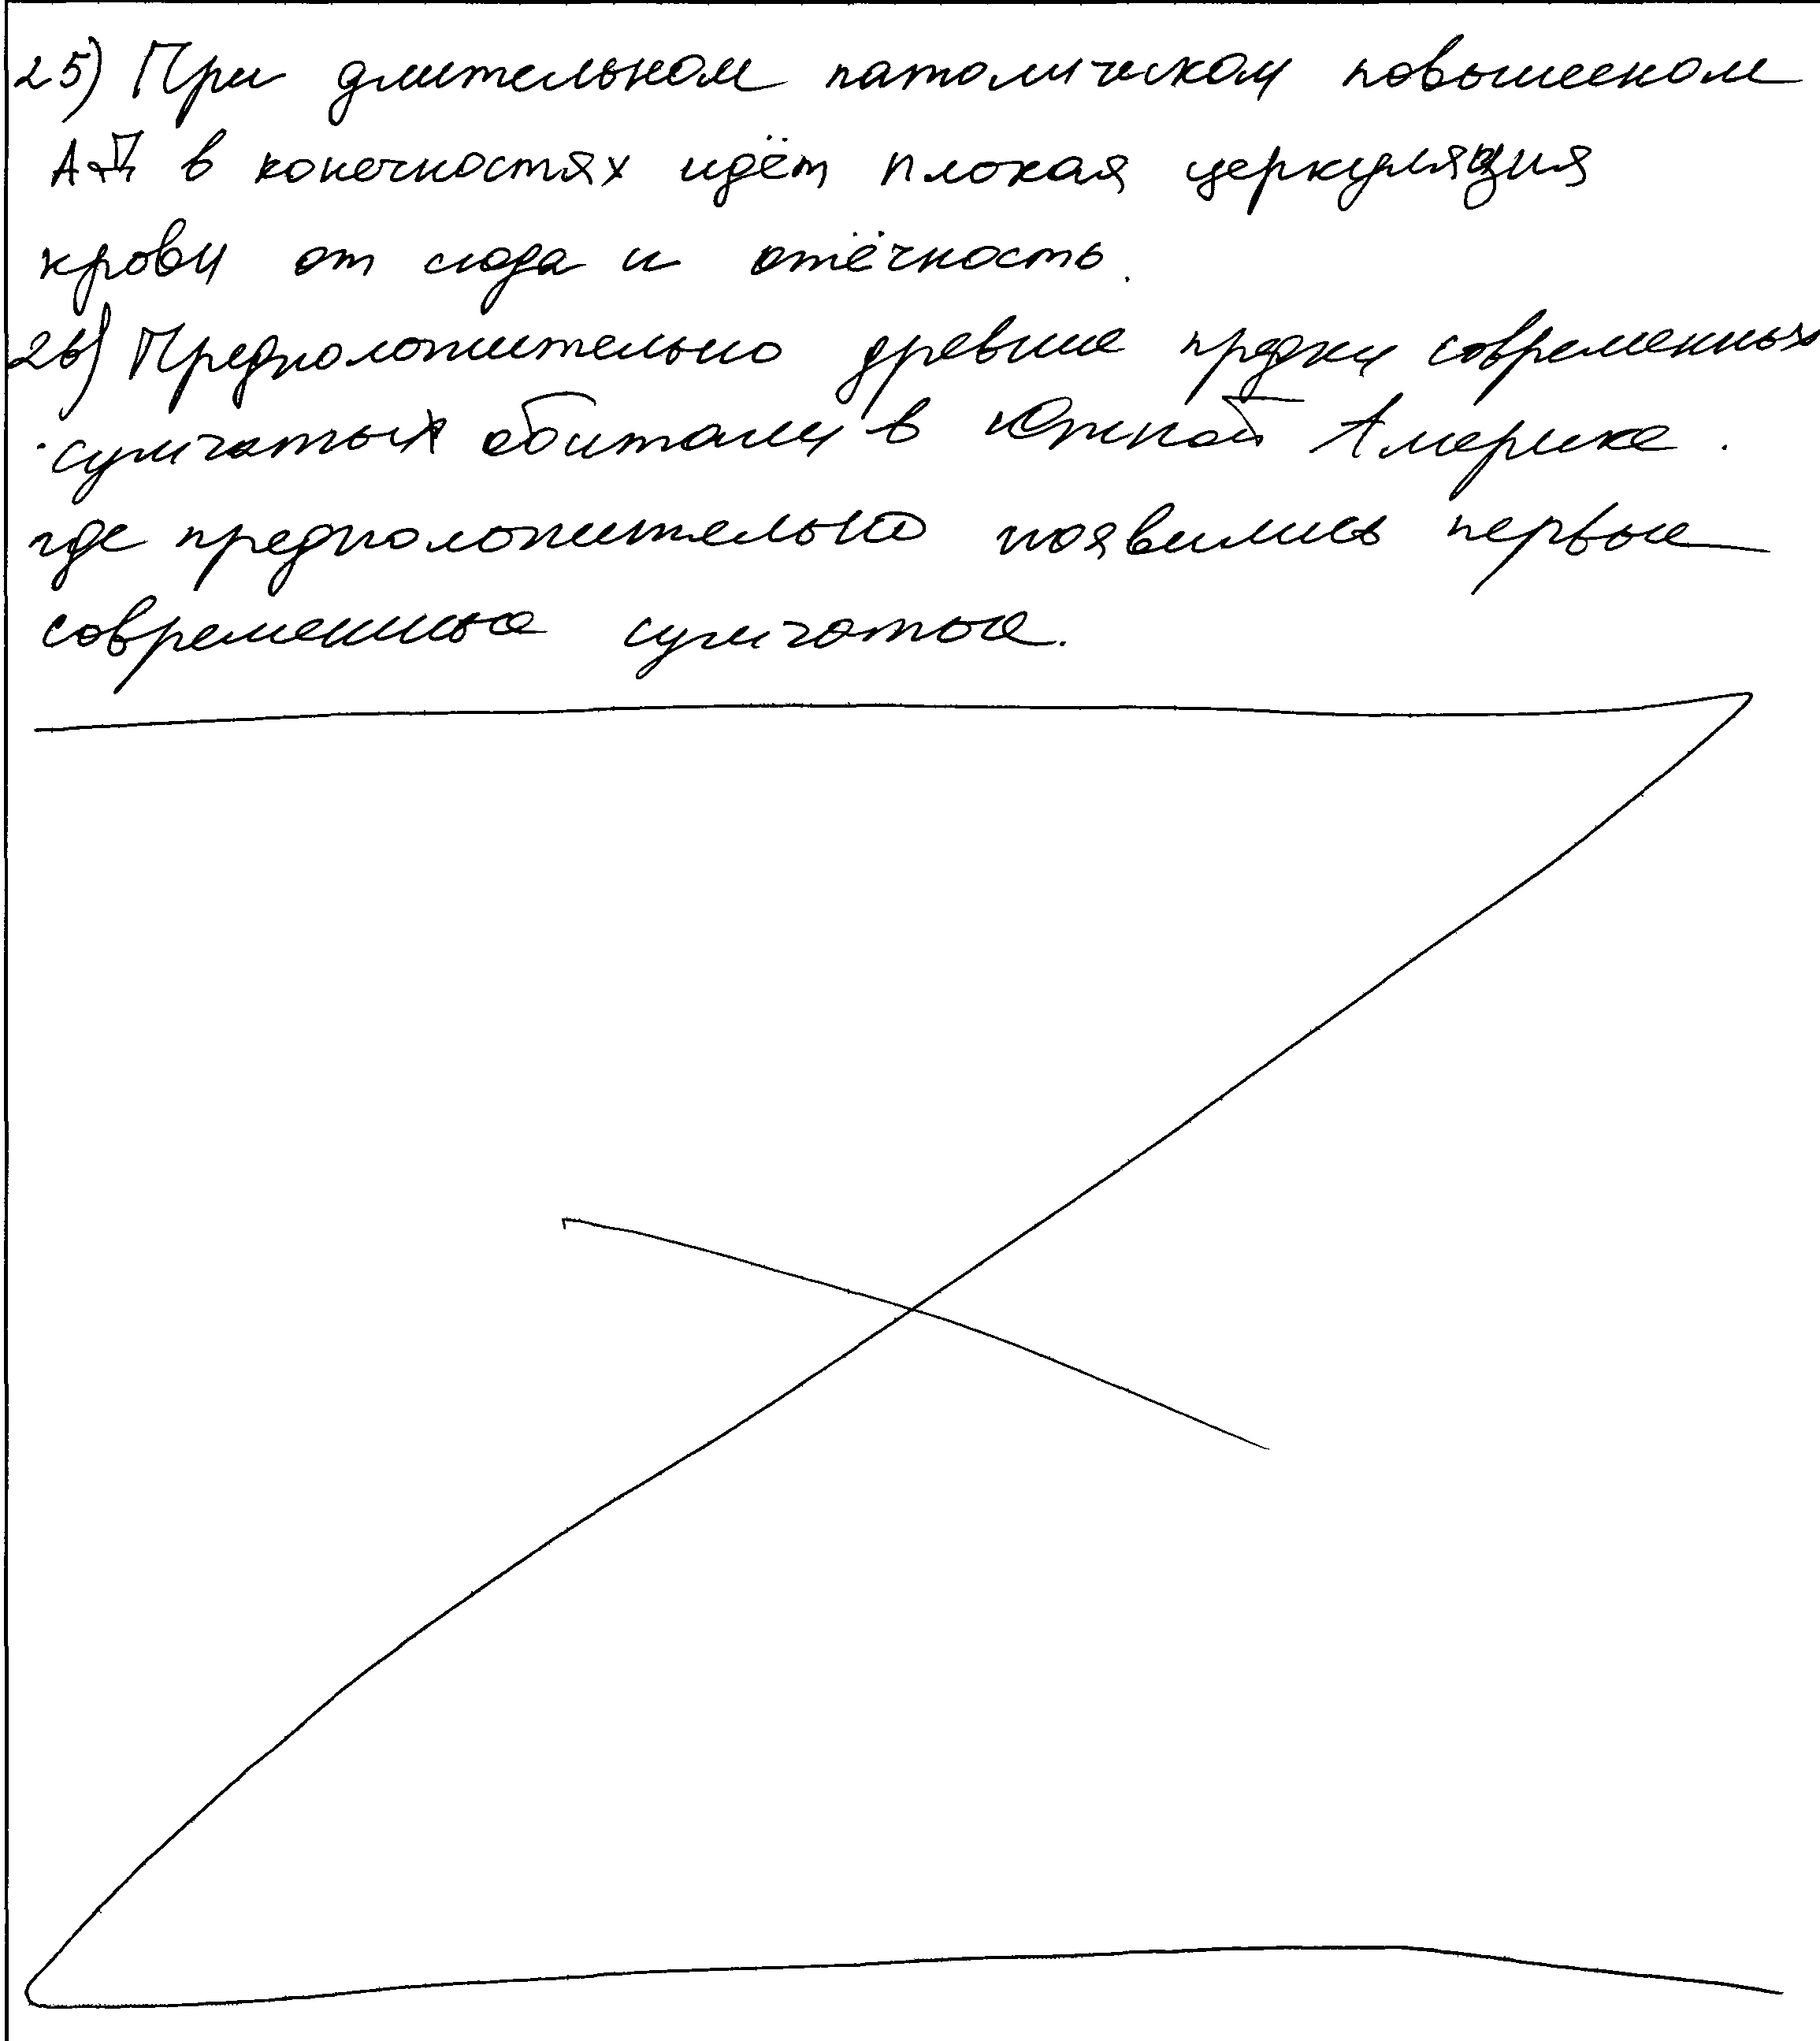 25) При длительном патолическом повышеном
АД в конечностях идёт плохая церкуляция
крови от сюда и отёчность.
26) Предположительно древние предки современных
сумчатых обитали в Южной Америке.
где предположительно появились первые
современные сумчатые.